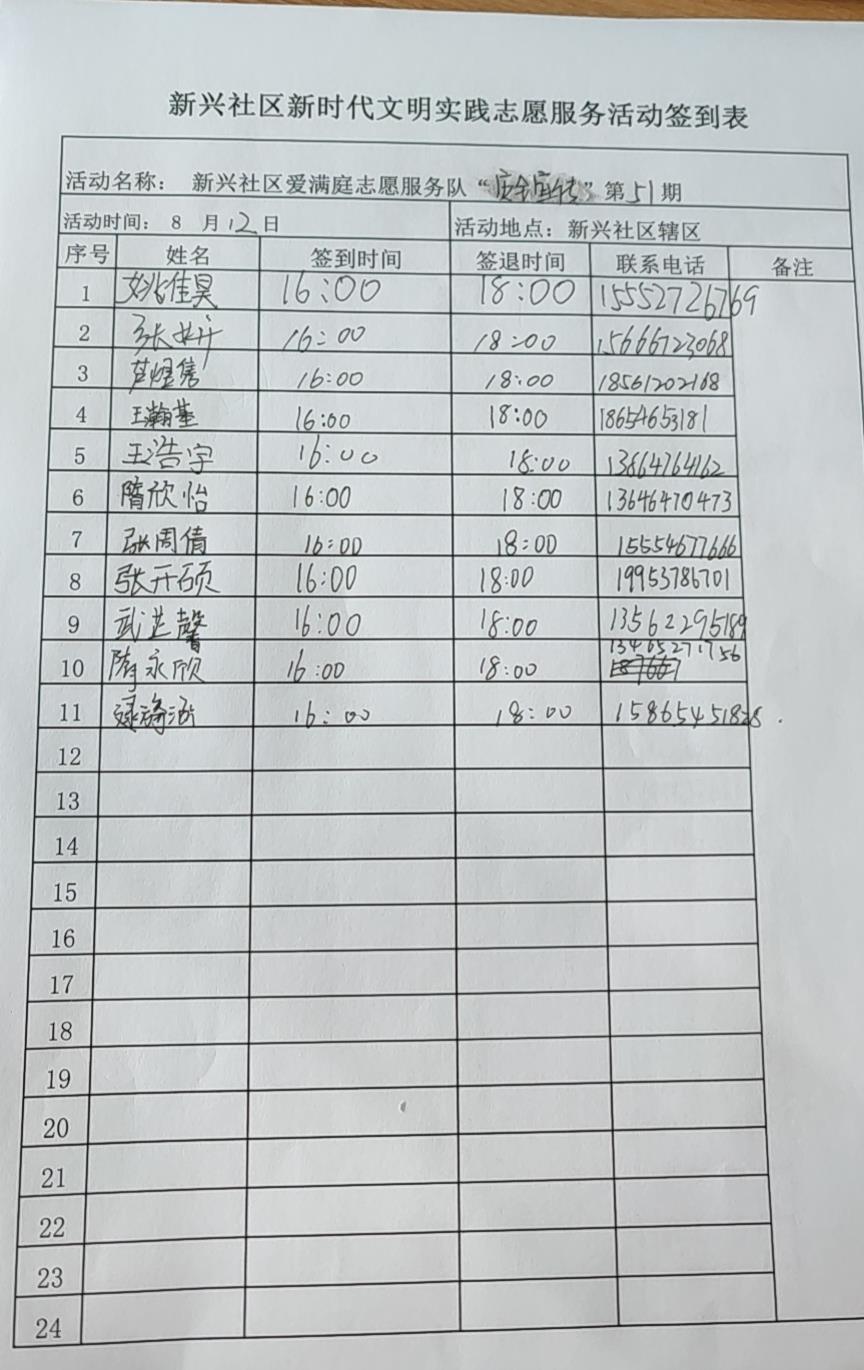 新兴社区新时代文明实践志愿服务活动签到表
活动名称： 新兴社区爱满庭志愿服务队“安全宣传”第51期
活动时间： 8 月12日 活动地点：新兴社区辖区
序号 姓名 签到时间 签退时间 联系电话 备注
1 姚佳昊 16:00 18:00 15552726769
2 张妍 16:00 18:00 15666723068
3 16:00 18:00 18561202168
4 王瀚基 16:00 18:00 18654653181
5 王浩宇 16:00 18:00 13864764162
6 隋欣怡 16:00 18:00 13646470473
7 张周倩 16:00 18:00 15554677666
8 张开硕 16:00 18:00 19953786701
9 武芷馨 16:00 18:00 13562295189
10 隋永欣 16:00 18:00 13465271756
11 16:00 18:00 15865451828
12
13
14
15
16
17
18
19
20
21
22
23
24